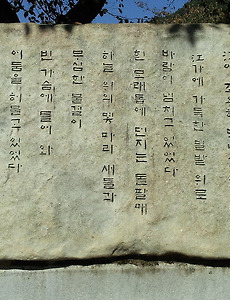 강가에 가득한 밀밭 위로
바람이 넘치고 있었다
흰 모래톱에 던지는 돌팔매
하늘 위의 몇마리 새들과
무심한 물결이
빈 가슴에 들에 와
어둠을 허물고 있었다